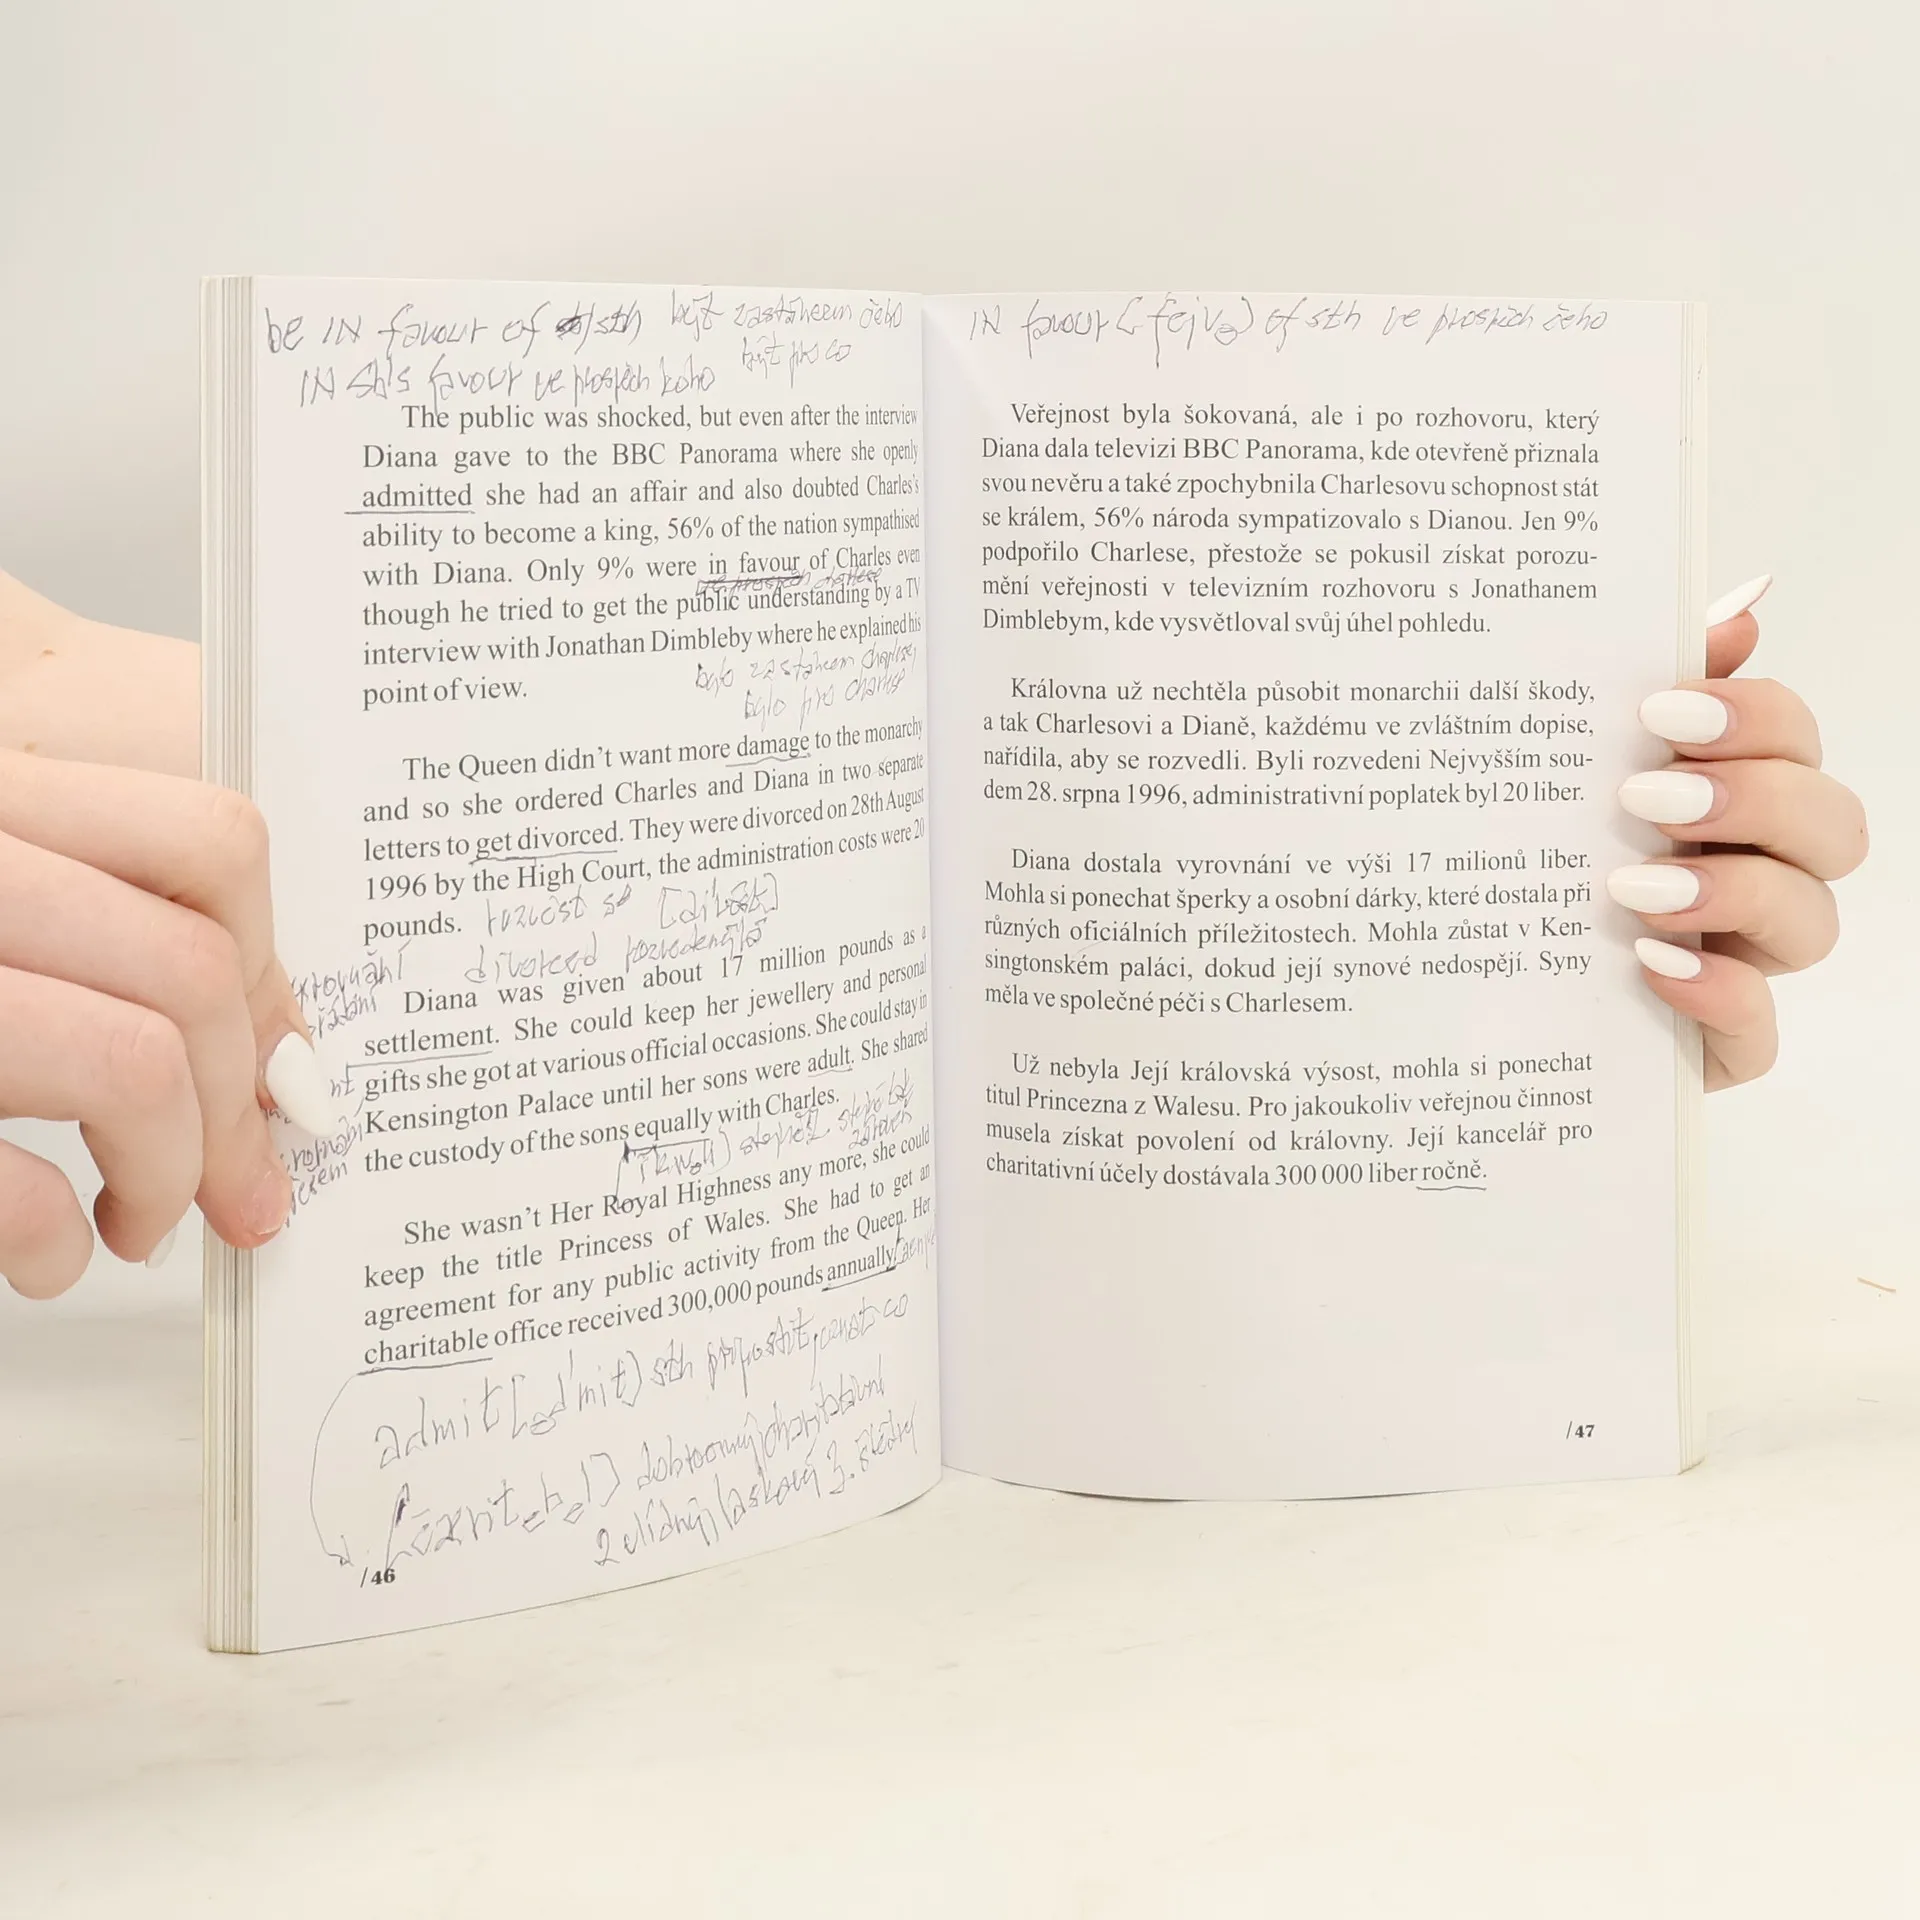 be IN favour of sth být zastáncem čeho
být pro co
IN sb's favour ve prospěch koho
The public was shocked, but even after the interview
Diana gave to the BBC Panorama where she openly
admitted she had an affair and also doubted Charles's
ability to become a king, 56% of the nation sympathised
with Diana. Only 9% were in favour of Charles even
ve prospěch charlese
though he tried to get the public understanding by a TV
interview with Jonathan Dimbleby where he explained his
point of view.
bylo zastáncem charlese,
bylo pro charlese
The Queen didn't want more damage to the monarchy
and so she ordered Charles and Diana in two separate
letters to get divorced. They were divorced on 28th August
1996 by the High Court, the administration costs were 20
pounds. rozvést se
divorced
Diana was given about 17 million pounds as a
settlement. She could keep her jewellery and personal
gifts she got at various official occasions. She could stay in
Kensington Palace until her sons were adult. She shared
the custody of the sons equally with Charles.
She wasn't Her Royal Highness any more, she could
keep the title Princess of Wales. She had to get an
agreement for any public activity from the Queen. Her
charitable office received 300,000 pounds annually.
admit [əd'mit] sth připustit, uznat co
dobročinný, charitativní
2 vlídný, laskavý 3. štědrý
/46
IN favour [fejvə] of sth ve prospěch čeho
Veřejnost byla šokovaná, ale i po rozhovoru, který
Diana dala televizi BBC Panorama, kde otevřeně přiznala
svou nevěru a také zpochybnila Charlesovu schopnost stát
se králem, 56% národa sympatizovalo s Dianou. Jen 9%
podpořilo Charlese, přestože se pokusil získat porozu-
mění veřejnosti v televizním rozhovoru s Jonathanem
Dimblebym, kde vysvětloval svůj úhel pohledu.
Královna už nechtěla působit monarchii další škody,
a tak Charlesovi a Dianě, každému ve zvláštním dopise,
nařídila, aby se rozvedli. Byli rozvedeni Nejvyšším sou-
dem 28. srpna 1996, administrativní poplatek byl 20 liber.
Diana dostala vyrovnání ve výši 17 milionů liber.
Mohla si ponechat šperky a osobní dárky, které dostala při
různých oficiálních příležitostech. Mohla zůstat v Ken-
singtonském paláci, dokud její synové nedospějí. Syny
měla ve společné péči s Charlesem.
Už nebyla Její královská výsost, mohla si ponechat
titul Princezna z Walesu. Pro jakoukoliv veřejnou činnost
musela získat povolení od královny. Její kancelář pro
charitativní účely dostávala 300 000 liber ročně.
/47